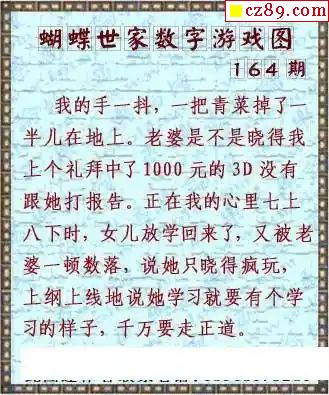 cz89.com
蝴蝶世家数字游戏图
164期
我的手一抖，一把青菜掉了一
半儿在地上。老婆是不是晓得我
上个礼拜中了1000元的3D没有
跟她打报告。正在我的心里七上
八下时，女儿放学回来了，又被老
婆一顿数落，说她只晓得疯玩，
上纲上线地说她学习就要有个学
习的样子，千万要走正道。